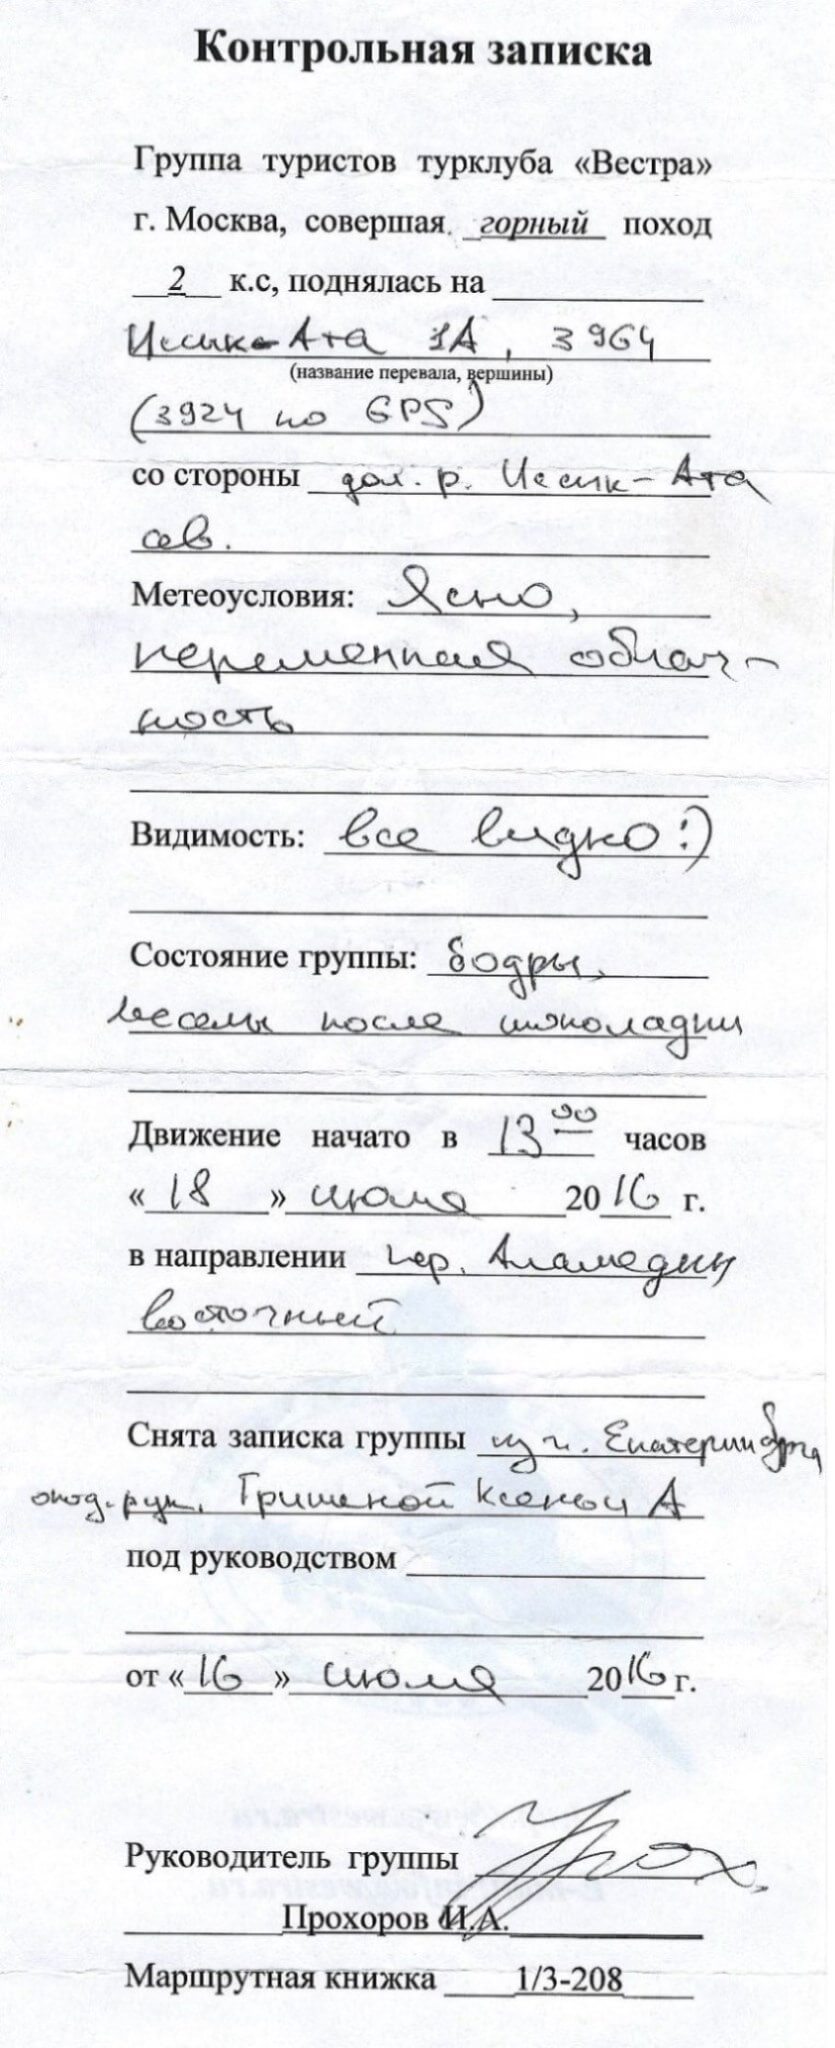 Контрольная записка
Группа туристов турклуба «Вестра»
г. Москва, совершая горный поход
2 к.с, поднялась на
Иссык-Ата 1А, 3964
(название перевала, вершины)
(3924 по GPS)
со стороны дол. р. Иссык-Ата
сев.
Метеоусловия: Ясно,
переменная облач-
ность
Видимость: все видно :)
Состояние группы: бодры,
веселы после шоколадки
Движение начато в 13 00 часов
«18» июля 2016 г.
в направлении пер. Аламедин
восточный
Снята записка группы из г. Екатеринбурга
под рук. Гришиной Ксении А
под руководством
от «16» июля 2016 г.
Руководитель группы
Прохоров И.А.
Маршрутная книжка 1/3-208